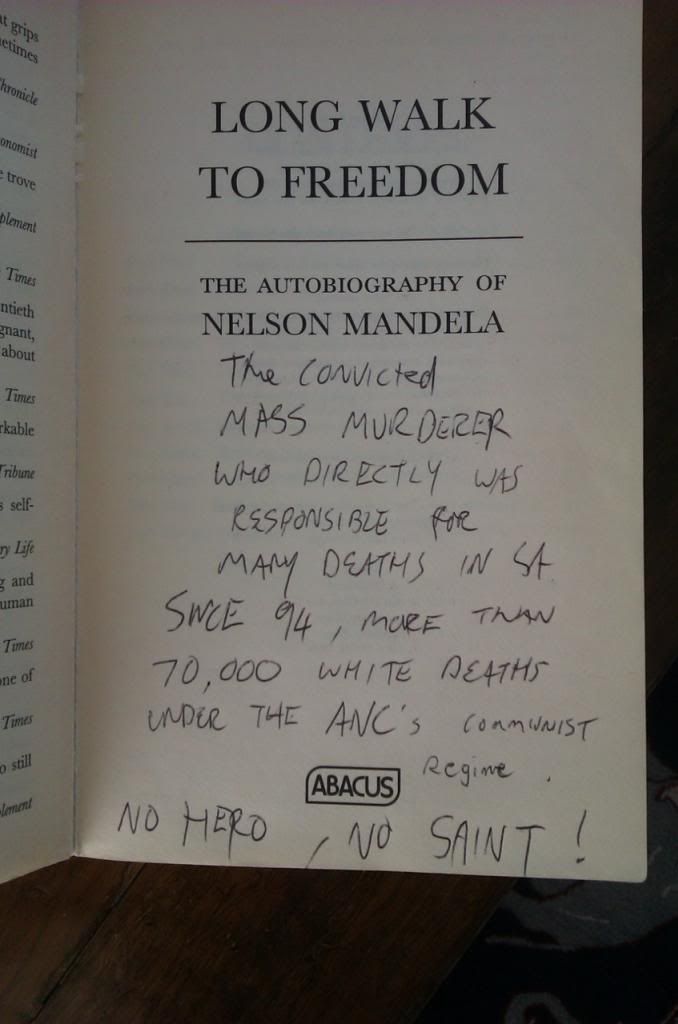 t grips
etimes
hronicle
onomist
e trove
plement
Times
ntieth
gnant,
about
Times
rkable
Tribune
s self-
ry Life
g and
uman
Times
ne of
Times
o still
lement
LONG WALK
TO FREEDOM
THE AUTOBIOGRAPHY OF
NELSON MANDELA
The convicted
MASS MURDERER
WHO DIRECTLY WAS
RESPONSIBLE FOR
MANY DEATHS IN SA
SINCE 94, MORE THAN
70,000 WHITE DEATHS
UNDER THE ANC's COMMUNIST
Regime.
ABACUS
NO HERO, NO SAINT!